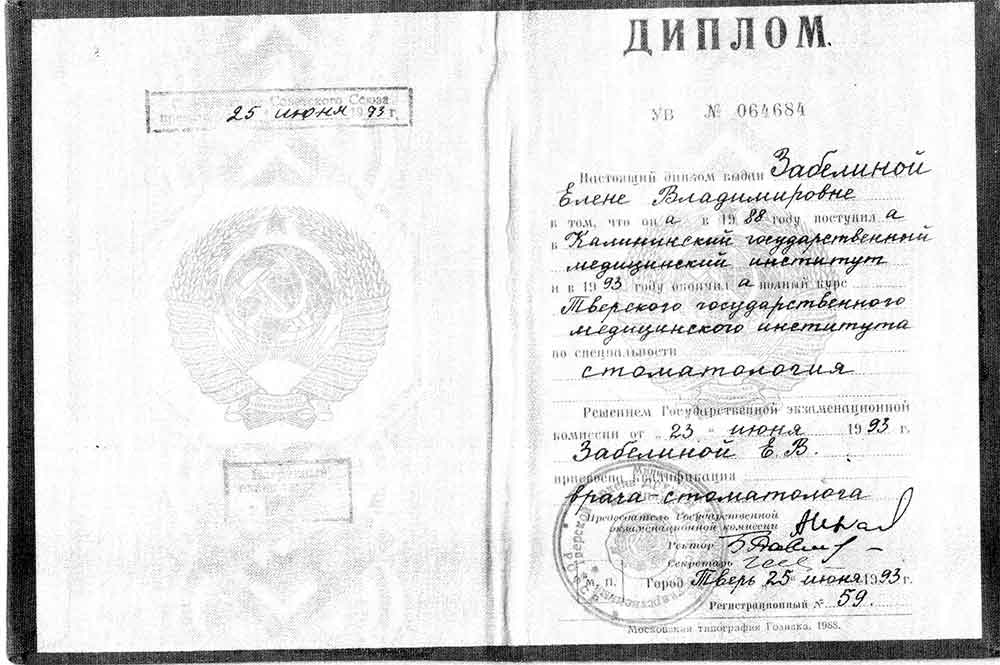 Советского Союза
25 июня 1993 г.
ДИПЛОМ.
УВ № 064684
Настоящий диплом выдан Забелиной
Елене Владимировне
в том, что он а в 1988 году поступил а
в Калининский государственный
медицинский институт
и в 1993 году окончил а полный курс
Тверского государственного
медицинского института
по специальности
стоматология
Решением Государственной экзаменационной
комиссии от „23“ июня 1993 г.
Забелиной Е. В.
присвоена квалификация
врача-стоматолога
Председатель Государственной
экзаменационной комиссии
Ректор
Секретарь
М. П. Город Тверь 25 „ июня 1993 г.
Регистрационный № 59.
Московская типография Гознака. 1988.